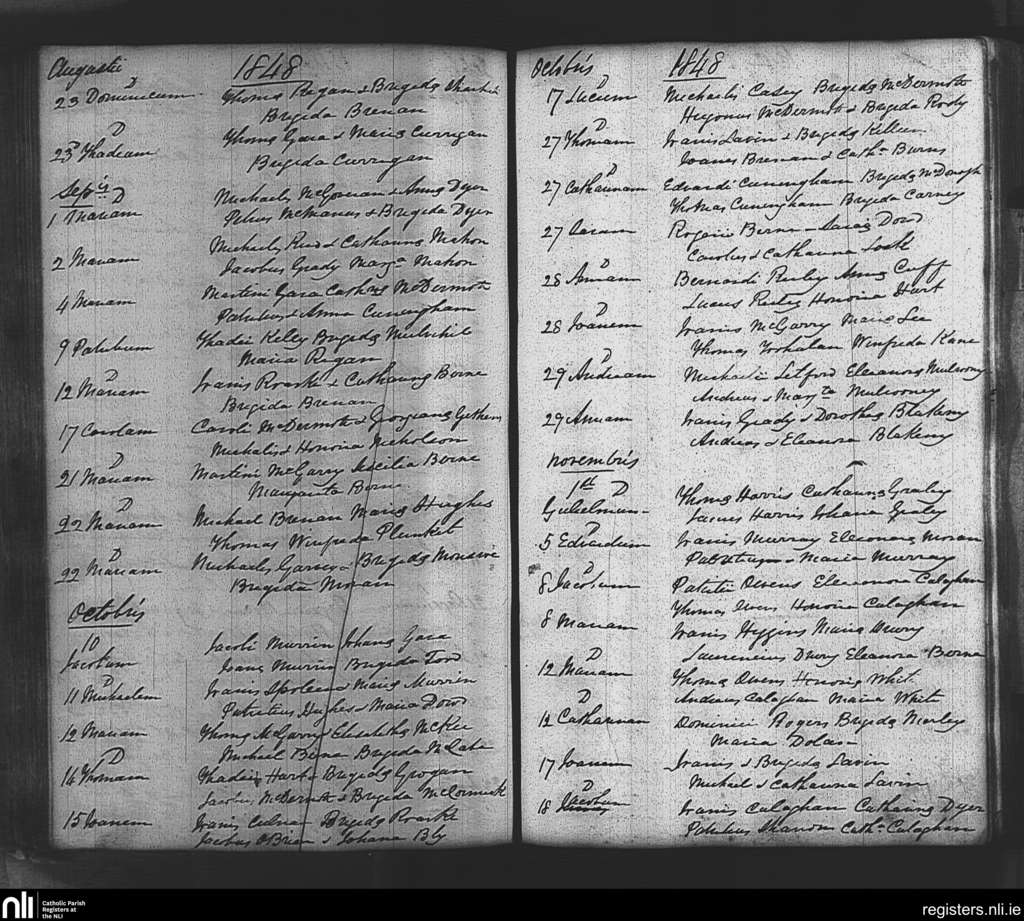 Augusti 1848
D
23 Dominicum Thoma Regan & Brigida
Brigida Brenan
D
23 Thadeum Thoma Gara & Maria Currigan
Brigida Currigan
Sepris
D
1 Mariam Michaelis McGowan & Anna Dyer
Petrus McManus & Brigida Dyer
2 Mariam Michaelis Reid & Catharina Mahon
Jacobus Grady Marga Mahon
4 Mariam Martini Gara Catha McDermott
Patritius & Anna Cuningham
9 Patritium Thadei Kelly Brigida Mulvihil
Maria Regan
D
12 Mariam Ioanis Roarke & Catharina Borne
Brigida Brenan
17 Carolum Caroli McDermott & Georgiana Gethens
Michaelis & Honoria Nicholson
D
21 Mariam Martini McGarry Secilia Borne
Margarita Borne
D
22 Mariam Michael Brenan Maria Hughes
Thomas Winifreda Plunket
D
22 Mariam Michaelis Garvey & Brigida
Brigida Moran
Octobris
10
Jacobum Jacobi Murrin Johana Gara
Joana Murrin Brigida Ford
D
11 Michaelem Ioanis Spoleen & Maria Murrin
Patritius Hughes & Maria Dowd
12 Mariam Thoma McGarry Elisabetha McKee
Michael Berne Brigida McCabe
D
14 Thomam Thadei Harte Brigida Grogan
Jacobus McDermott & Brigida McCormick
15 Joanem Ioanis Culnan Brigida Roarke
Jacobus O'Brien & Johana Bly
Octobris 1848
D
17 Lucum Michaelis Casey Brigida McDermott
Hugonus McDermott & Brigida Rody
D
27 Thomam Ioanis Lavin & Brigida Killeen
Joanes Brenan & Catha Burns
27 Catharinam Edvardi Cuningham Brigida McDonogh
Thomas Cuningham Brigida Carney
27 Saram Rogerii Berne Saraia Dowd
Carolus & Catharina
D
28 Annam Bernardi Reily Anna Cuff
Lucus Reily Honoria Hart
D
28 Joanem Ioanis McGarry Maria Lee
Thomas Winifreda Kane
D
29 Andream Michaelis Letford Eleanora Mulrooney
Andreas & Marga Mulrooney
29 Annam Ioanis Grady & Dorothea Blakeny
Andreas & Eleanora Blakeny
Novembris
1st D
Gulielmum Thoma Harris Catharina Graly
Lacus Harris Johana Graly
D
5 Edvardum Ioanis Murray Eleonora Moran
Patritius Maria Murray
D
8 Jacobum Patritii Owens Eleanora Calaghan
Thomas Owens Honoria Calaghan
8 Mariam Ioanis Higgins Maria Drury
Laurencius Drury Eleanora Berne
D
12 Mariam Thoma Owens Honoria White
Andreas Calaghan Maria White
D
12 Catharinam Dominici Rogers Brigida Morley
Maria Dolan
17 Joanem Ioanis & Brigida Lavin
Michael & Catharina Lavin
D
18 Jacobum Ioanis Calaghan Catharina Dyer
Patritius Sharon Catha Calaghan
nli Catholic Parish
Registers at
the NLI
registers.nli.ie